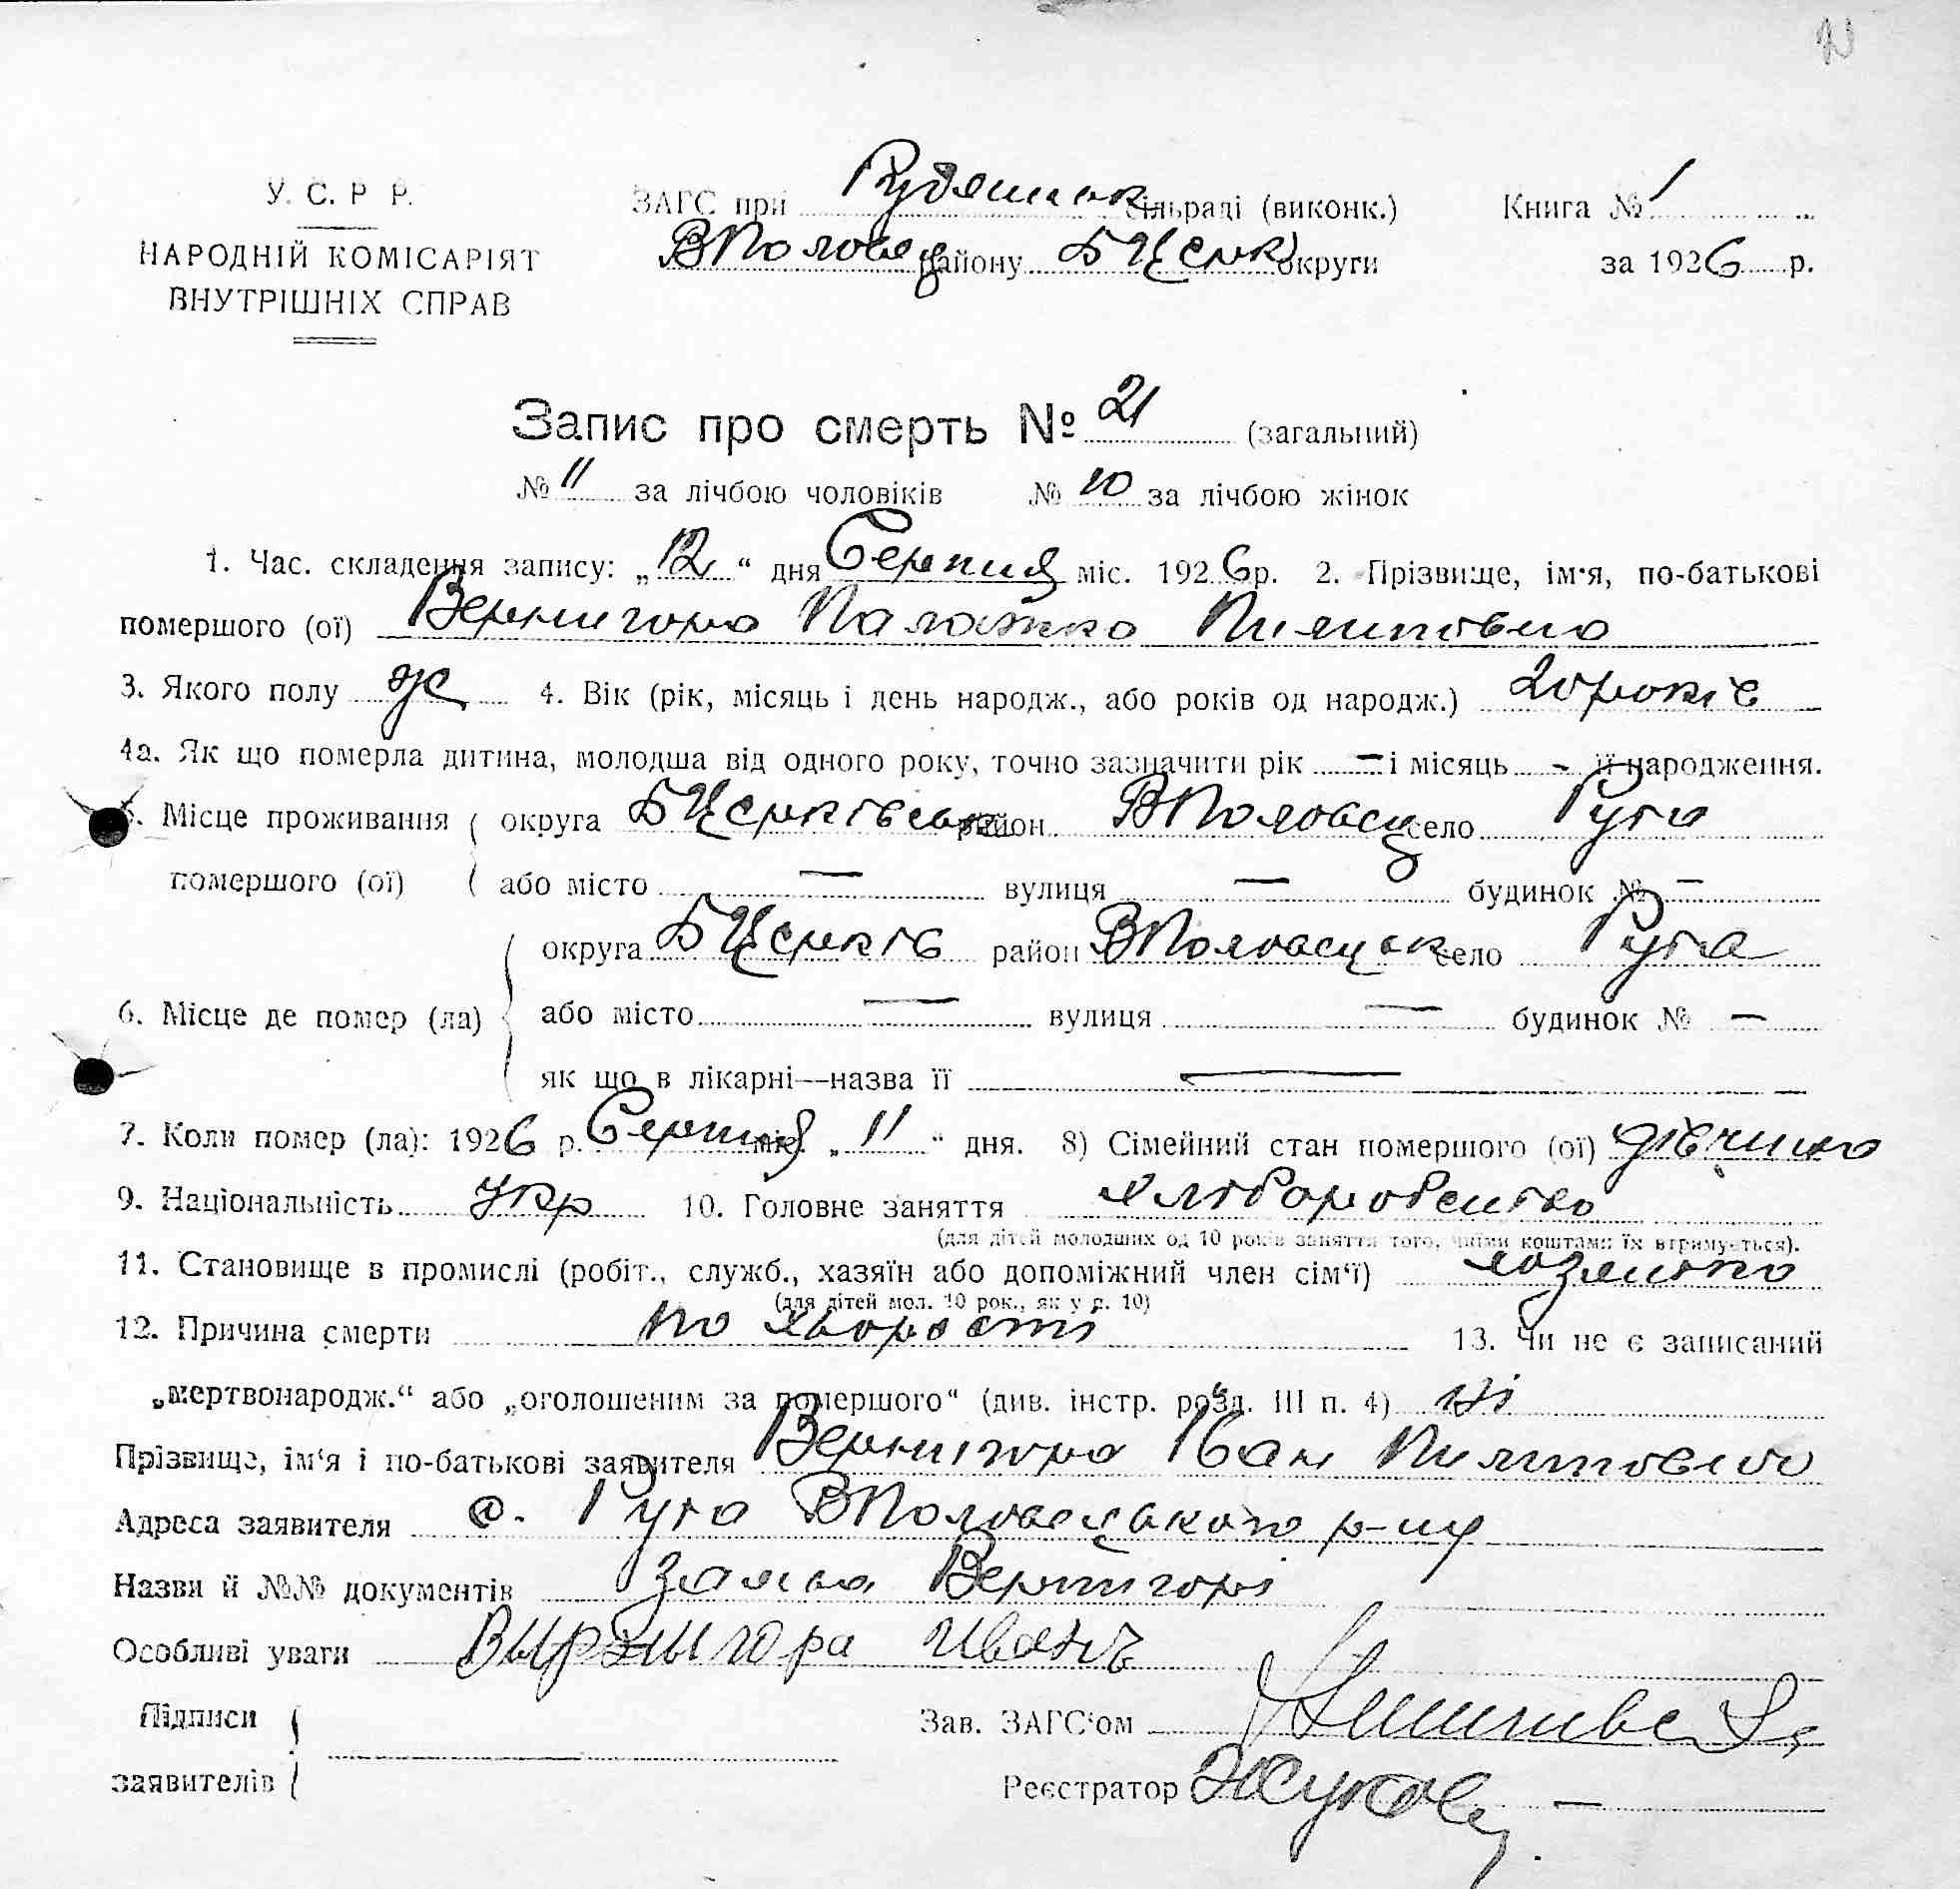 У. С. Р. Р.
НАРОДНІЙ КОМІСАРІЯТ
ВНУТРІШНІХ СПРАВ
ЗАГС при Рудянськ сільраді (виконк.)
ВПоловец району БЦерк округи
Книга № 1
за 1926 р.
Запис про смерть № 21 (загальний)
№ 11 за лічбою чоловіків № 10 за лічбою жінок
1. Час. складення запису: „12“ дня Серпня міс. 1926 р. 2. Прізвище, ім'я, по-батькові
помершого (ої) Вернигора Палажка Пилиповна
3. Якого полу ж 4. Вік (рік, місяць і день народж., або років од народж.) 20 років
4а. Як що померла дитина, молодша від одного року, точно зазначити рік — і місяць - її народження.
5. Місце проживання округа БЦерківська район ВПоловец село Рута
помершого (ої) або місто — вулиця — будинок № —
округа БЦерків район ВПоловецьк село Рута
6. Місце де помер (ла) або місто — вулиця — будинок № —
як що в лікарні—назва її —
7. Коли помер (ла): 1926 р. Серпня міс. „11“ дня. 8) Сімейний стан помершого (ої) дівчина
9. Національність Укр 10. Головне заняття хліборобство
(для дітей молодших од 10 років заняття того, чиїми коштами їх втримується).
11. Становище в промислі (робіт., служб., хазяїн або допоміжний член сім'ї) хазяйка
(для дітей мол. 10 рок., як у п. 10)
12. Причина смерти по хворості 13. Чи не є записаний
„мертвонародж.“ або „оголошеним за померлого“ (див. інстр. розд. III п. 4) ні
Прізвище, ім'я і по-батькові заявителя Вернигора Іван Пилипович
Адреса заявителя с. Рута ВПоловецького р-ну
Назви й №№ документів Заява Вернигори
Особливі уваги Вырныгора Иванъ
Підписи
заявителів
Зав. ЗАГС'ом
Реєстратор